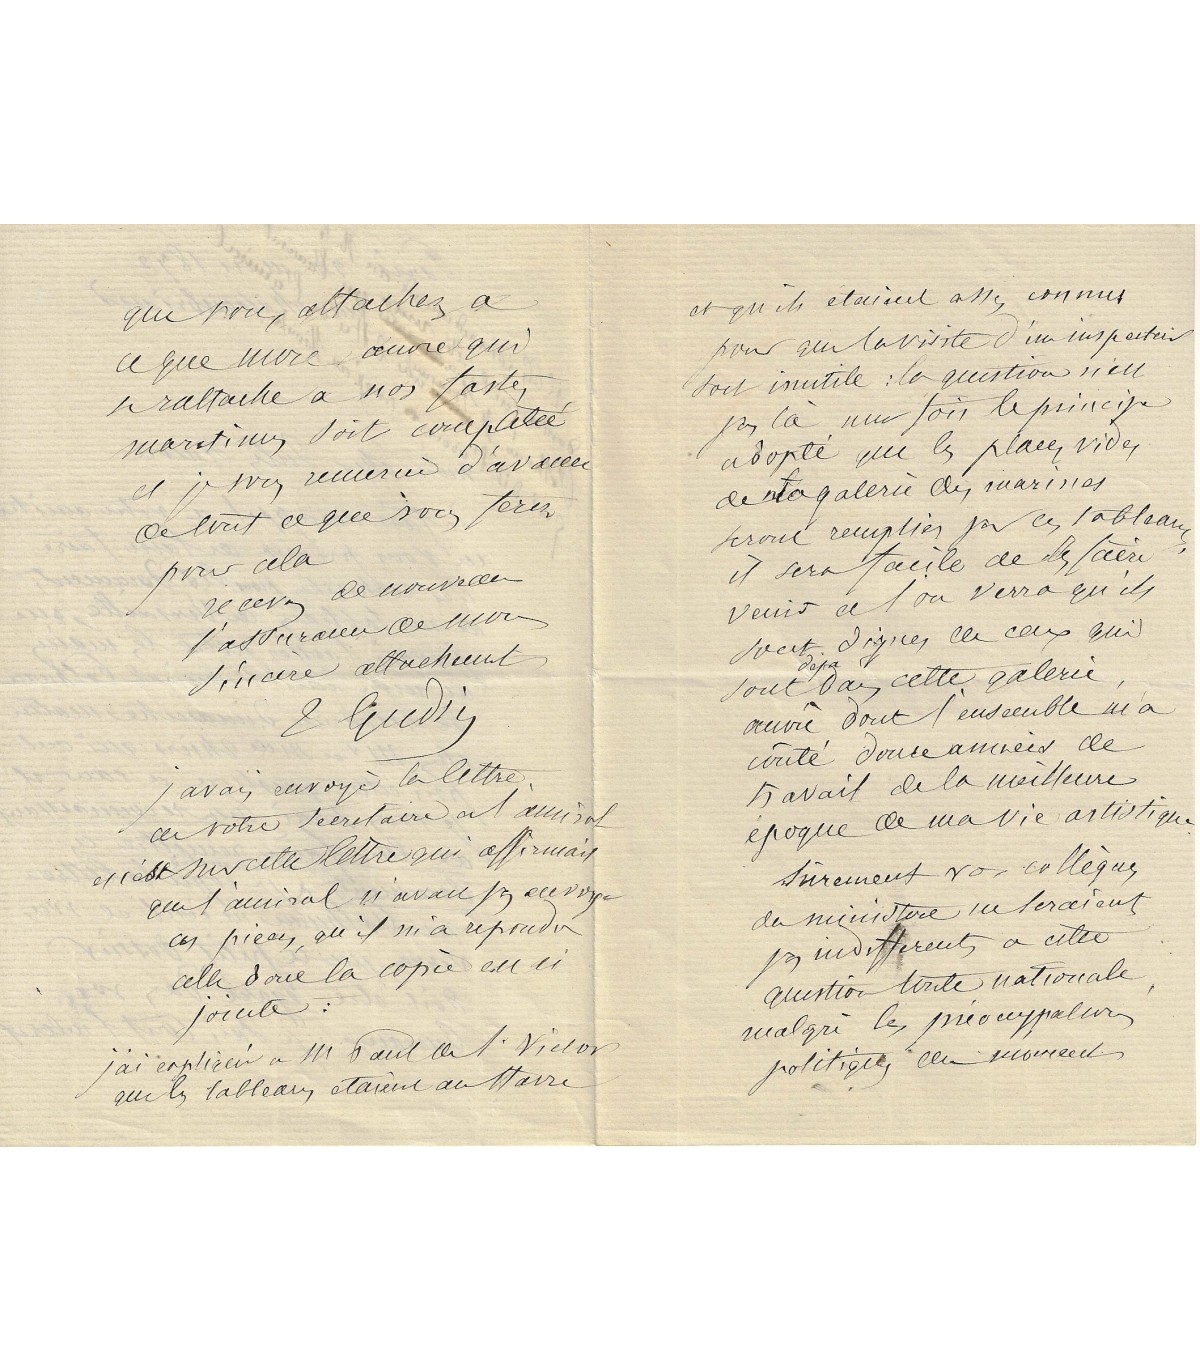 que vous attachez a
ce que mon œuvre qui
se rattache a nos fastes
maritimes soit completée
et je vous remercie d'avance
de tout ce que vous ferez
pour cela
recevez de nouveau
l'assurance de mon
sincère attachement
T Gudin
j'avais envoyé la lettre
de votre secretaire a l'amiral
et c'est sur cette lettre qui affirmait
que l'amiral n'avait pas envoyé
ces pieces, qu'il m'a repondu
celle dont la copie est ci
jointe :
j'ai expliqué a Mr Paul de St Victor
que les tableaux etaient au Havre
et qu'ils etaient assez connus
pour que la visite d'un inspecteur
soit inutile : la question n'est
pas là une fois le principe
adopté que les places vides
de la galerie des marines
seront remplies par ces tableaux,
il sera facile de les faire
venir et l'on verra qu'ils
sont dignes de ceux qui
sont déja dans cette galerie,
œuvre dont l'ensemble m'a
couté douze années de
travail de la meilleure
époque de ma vie artistique.
Surement vos collègues
du ministère ne seraient
pas indifferents a cette
question toute nationale,
malgré les préoccupations
politiques du moment